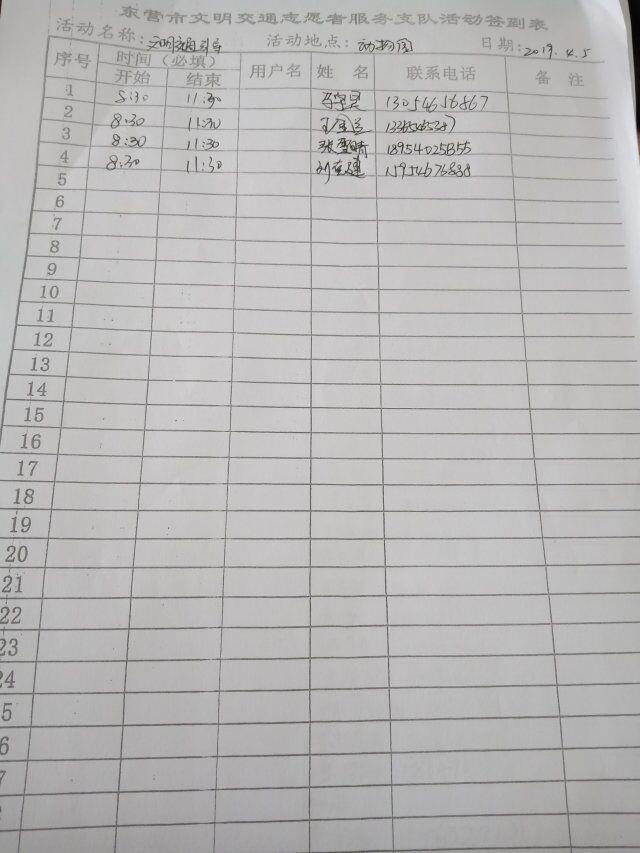 东营市文明交通志愿者服务支队活动签到表
活动名称：文明交通引导 活动地点：动物园 日期：2019.4.5
序号 时间（必填） 用户名 姓 名 联系电话 备 注
开始 结束
1 8:30 11:30 13054656867
2 8:30 11:30
3 8:30 11:30 张雪晴 18954025855
4 8:30 11:30 15954676838
5
6
7
8
9
10
11
12
13
14
15
16
17
18
19
20
21
22
23
24
5
6
7